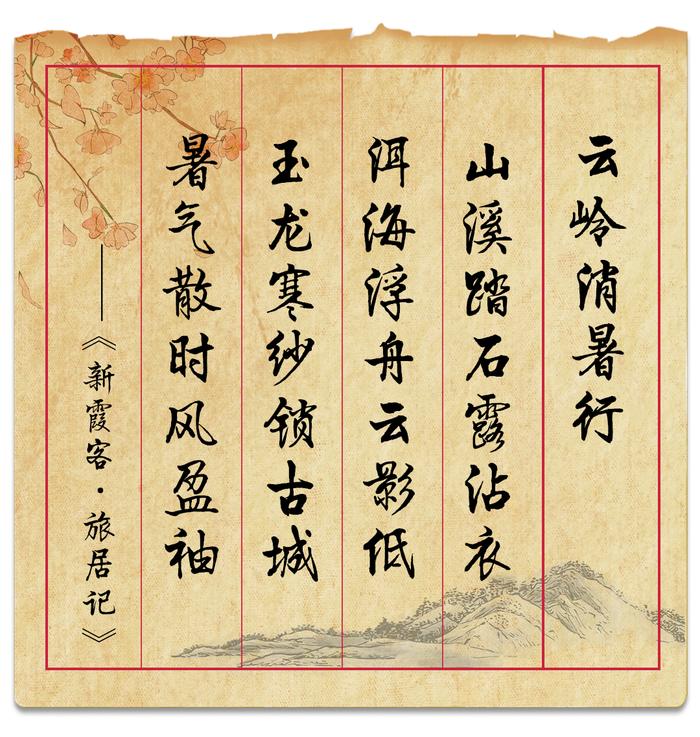 云岭消暑行
山溪踏石露沾衣
洱海浮舟云影低
玉龙寒纱锁古城
暑气散时风盈袖
——《新霞客·旅居记》